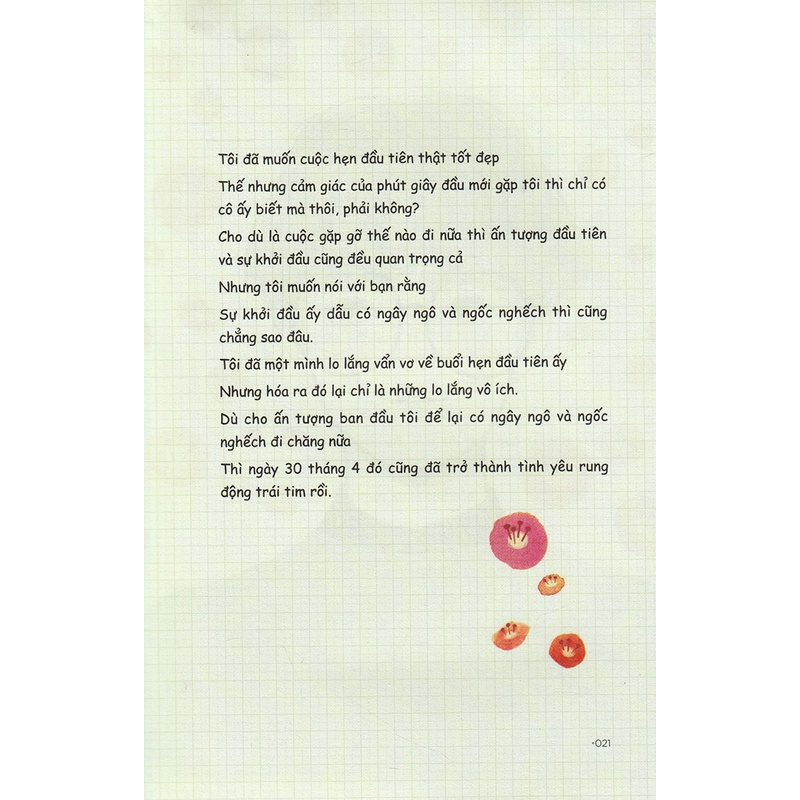 Tôi đã muốn cuộc hẹn đầu tiên thật tốt đẹp
Thế nhưng cảm giác của phút giây đầu mới gặp tôi thì chỉ có
cô ấy biết mà thôi, phải không?
Cho dù là cuộc gặp gỡ thế nào đi nữa thì ấn tượng đầu tiên
và sự khởi đầu cũng đều quan trọng cả
Nhưng tôi muốn nói với bạn rằng
Sự khởi đầu ấy dẫu có ngây ngô và ngốc nghếch thì cũng
chẳng sao đâu.
Tôi đã một mình lo lắng vẩn vơ về buổi hẹn đầu tiên ấy
Nhưng hóa ra đó lại chỉ là những lo lắng vô ích.
Dù cho ấn tượng ban đầu tôi để lại có ngây ngô và ngốc
nghếch đi chăng nữa
Thì ngày 30 tháng 4 đó cũng đã trở thành tình yêu rung
động trái tim rồi.
•021